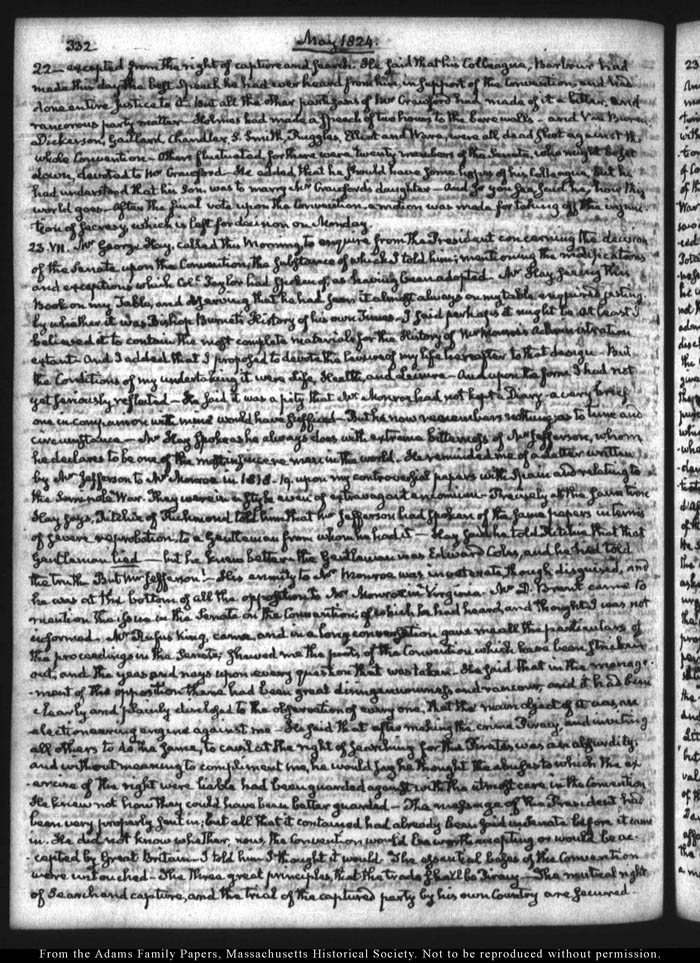 332
May 1824.
22— excepted from the right of capture and search. He said that his Colleague, Barbour had
made this day the best Speech he had ever heard from him, in support of the Convention, and had
done entire justice to it. But all the other partizans of Mr Crawford had made of it a bitter, and
rancorous party matter— Holmes had made a Speech of two hours to the bare walls— and Van Buren,
Dickerson, Gaillard, Chandler, S. Smith, Ruggles, Elliot and Ware, were all dead shot against the
whole Convention— Others fluctuated, for there were twenty members of the Senate, who might be set
down, devoted to Mr Crawford— He added that he should have some hopes of his Colleague, but he
had understood that his Son was to marry Mr Crawford's daughter— And so you see, said he, how the
world goes— After the final vote upon the Convention, a motion was made for taking off the injunc-
tion of secrecy, which is left for decision on Monday.
23. VII. Mr George Hay, called this Morning, to enquire from the President concerning the decision
of the Senate upon the Convention, the substance of which I told him; mentioning the modifications
and exceptions which Coll. Taylor had spoken of, as having been adopted. Mr Hay, seeing this
Book on my Table, and observing that he had seen it almost always on my table, enquired jesting-
ly whether it was Bishop Burnet's History of his own Times— I said perhaps it might be. At least I
believed it to contain the most complete materials for the History of Mr Monroe's Administration
extant. And I added that I proposed to devote the leisure of my life hereafter to that design. But
the Conditions of my undertaking it were Life, Health, and Leisure— And upon the form I had not
yet seriously reflected— He said it was a pity that Mr Monroe had not kept a Diary— a very brief
one in comparison with mine would have sufficed— But he now remembers nothing as to time and
circumstance— Mr Hay spoke as he always does with extreme bitterness of Mr Jefferson, whom
he declares to be one of the most insincere men in the world. He reminded me of a letter written
by Mr Jefferson to Mr Monroe in 1818-19. upon my controversial papers with Spain and relating to
the Seminole War. They were in a style even of extravagant encomium— Precisely at the same time
Hay says, Ritchie of Richmond told him that Mr Jefferson had spoken of the same papers in terms
of severe reprobation, to a Gentleman from whom he had it— Hay said he told Ritchie that that
Gentleman lied— but he knew better. the Gentleman was Edward Coles, and he had told
the truth. But Mr Jefferson!— His enmity to Mr Monroe was inveterate though disguised, and
he was at the bottom of all the opposition to Mr Monroe in Virginia. Mr D. Brent came to
mention the issue in the Senate on the Convention; of which he had heard, and thought I was not
informed. Mr Rufus King, came, and in a long conversation gave me all the particulars of
the proceedings in the Senate; shewed me the parts of the Convention which have been stricken
out, and the yeas and nays upon every question that was taken. He said that in the manage-
ment of the opposition there had been great disingenuousness and rancour, and it had been
clearly and plainly disclosed to the observation of every one, that the main object of it was, an
electioneering engine against me— He said that after making the crime Piracy and inviting
all others to do the same, to cavil at the right of searching for the Pirates, was an absurdity.
and without meaning to compliment me, he would say he thought the abuses to which the ex-
ercise of the right were liable had been guarded against with the utmost care in the Convention
He knew not how they could have been better guarded— The message of the President had
been very properly sent in; but all that it contained had already been said in debate before it came
in. He did not know whether now, the Convention would be worth accepting or would be ac-
cepted by Great Britain— I told him I thought it would. The essential bases of the Convention
were untouched— The three great principles, that the trade shall be Piracy— The mutual right
of Search and capture, and the trial of the captured party by his own Country are secured—
From the Adams Family Papers, Massachusetts Historical Society. Not to be reproduced without permission.